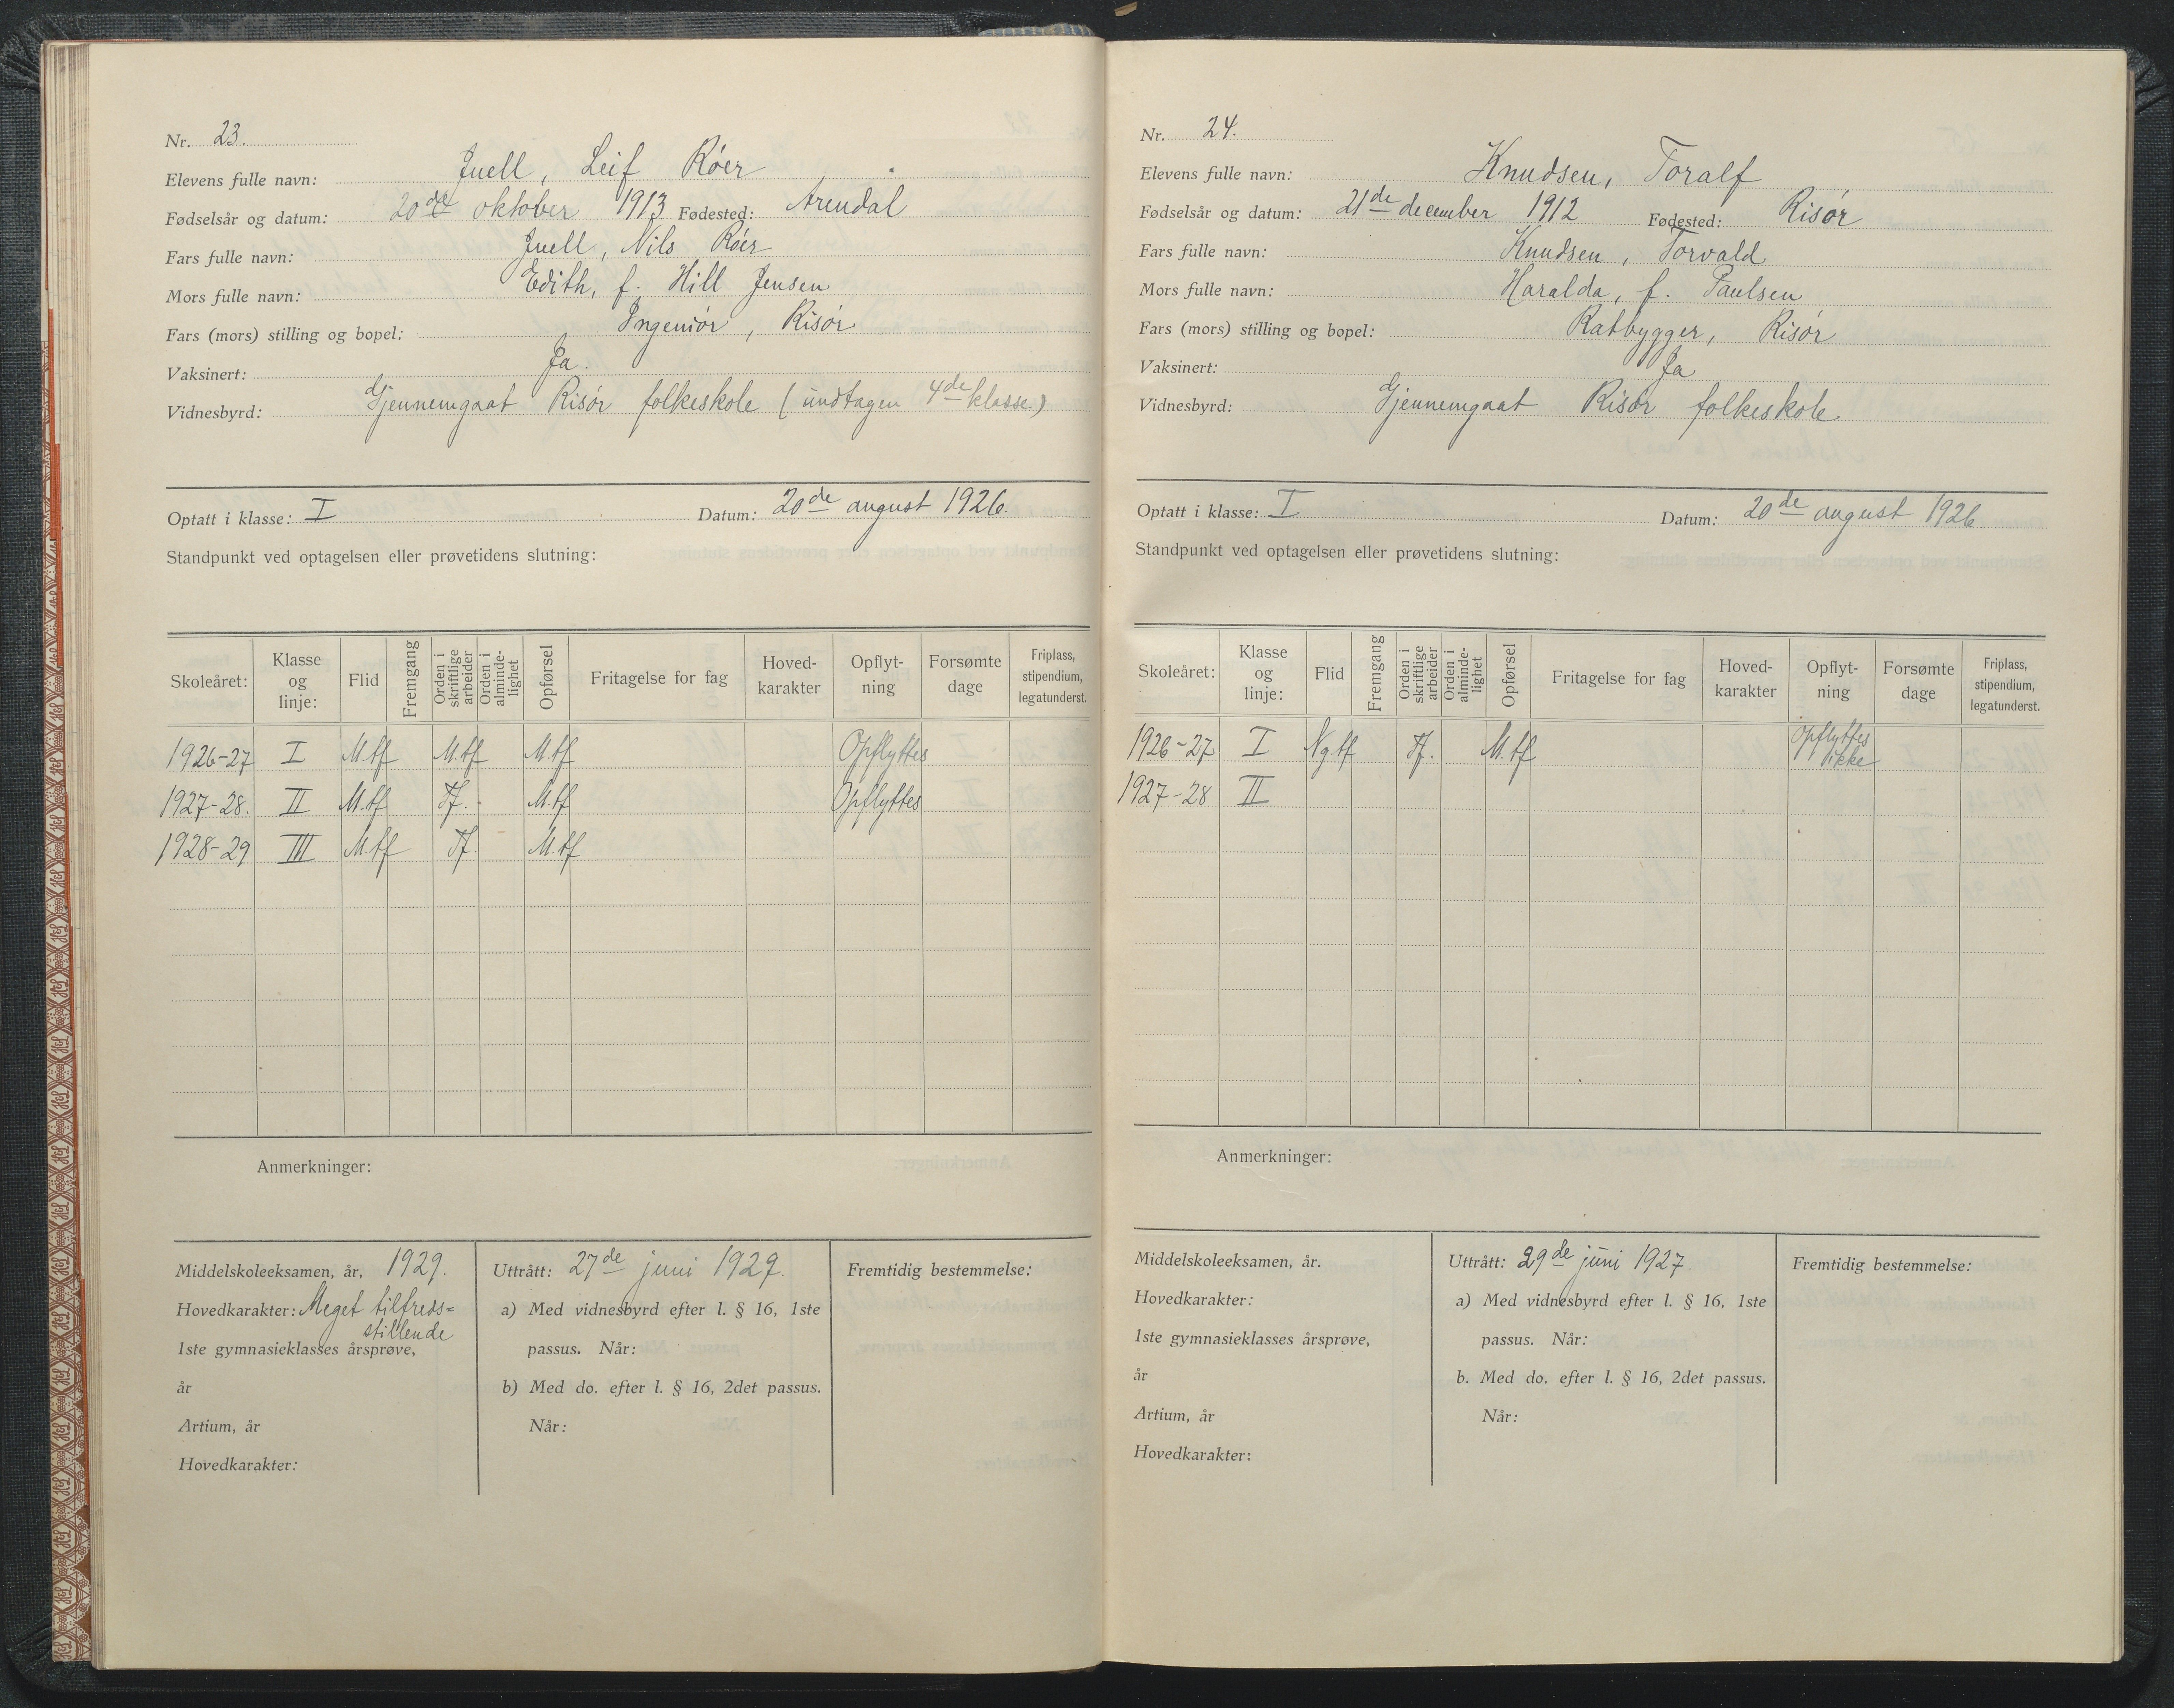 Nr. 23.
Elevens fulle navn: Juell, Leif Röer
Fødselsår og datum: 20de oktober 1913 Fødested: Arendal
Fars fulle navn: Juell, Nils Röer
Mors fulle navn: Edith, f. Hill Jensen
Fars (mors) stilling og bopel: Ingeniør, Risør
Vaksinert: Ja.
Vidnesbyrd: Gjennemgaat Risør folkeskole (undtagen 4de klasse)
Optatt i klasse: I Datum: 20de august 1926.
Standpunkt ved optagelsen eller prøvetidens slutning:
Skoleåret: Klasse og linje: Flid Fremgang Orden i skriftlige arbeider Orden i alminde-lighet Opførsel Fritagelse for fag Hoved-karakter Opflyt-ning Forsømte dage Friplass, stipendium, legatunderst.
1926-27 I M.tf M.tf M.tf Opflyttes
1927-28. II M.tf Tf. M.tf Opflyttes
1928-29 III M.tf Tf. M.tf
Anmerkninger:
Middelskoleeksamen, år, 1929.
Hovedkarakter: Meget tilfreds=
stillende
1ste gymnasieklasses årsprøve,
år
Artium, år
Hovedkarakter:
Uttrått: 27de juni 1929.
a) Med vidnesbyrd efter l. § 16, 1ste
passus. Når:
b) Med do. efter l. § 16, 2det passus.
Når:
Fremtidig bestemmelse:
Nr. 24.
Elevens fulle navn: Knudsen, Toralf
Fødselsår og datum: 21de december 1912 Fødested: Risør
Fars fulle navn: Knudsen, Torvald
Mors fulle navn: Haralda, f. Paulsen
Fars (mors) stilling og bopel: Batbygger, Risør
Vaksinert: Ja
Vidnesbyrd: Gjennemgaat Risør folkeskole
Optatt i klasse: I Datum: 20de august 1926
Standpunkt ved optagelsen eller prøvetidens slutning:
Skoleåret: Klasse og linje: Flid Fremgang Orden i skriftlige arbeider Orden i alminde-lighet Opførsel Fritagelse for fag Hoved-karakter Opflyt-ning Forsømte dage Friplass, stipendium, legatunderst.
1926-27 I Ng.tf Tf. M.tf Opflyttes ikke
1927-28 II
Anmerkninger:
Middelskoleeksamen, år.
Hovedkarakter:
1ste gymnasieklasses årsprøve,
år
Artium, år
Hovedkarakter:
Uttrått: 29de juni 1927.
a) Med vidnesbyrd efter l. § 16, 1ste
passus. Når:
b. Med do. efter l. § 16, 2det passus.
Når:
Fremtidig bestemmelse: